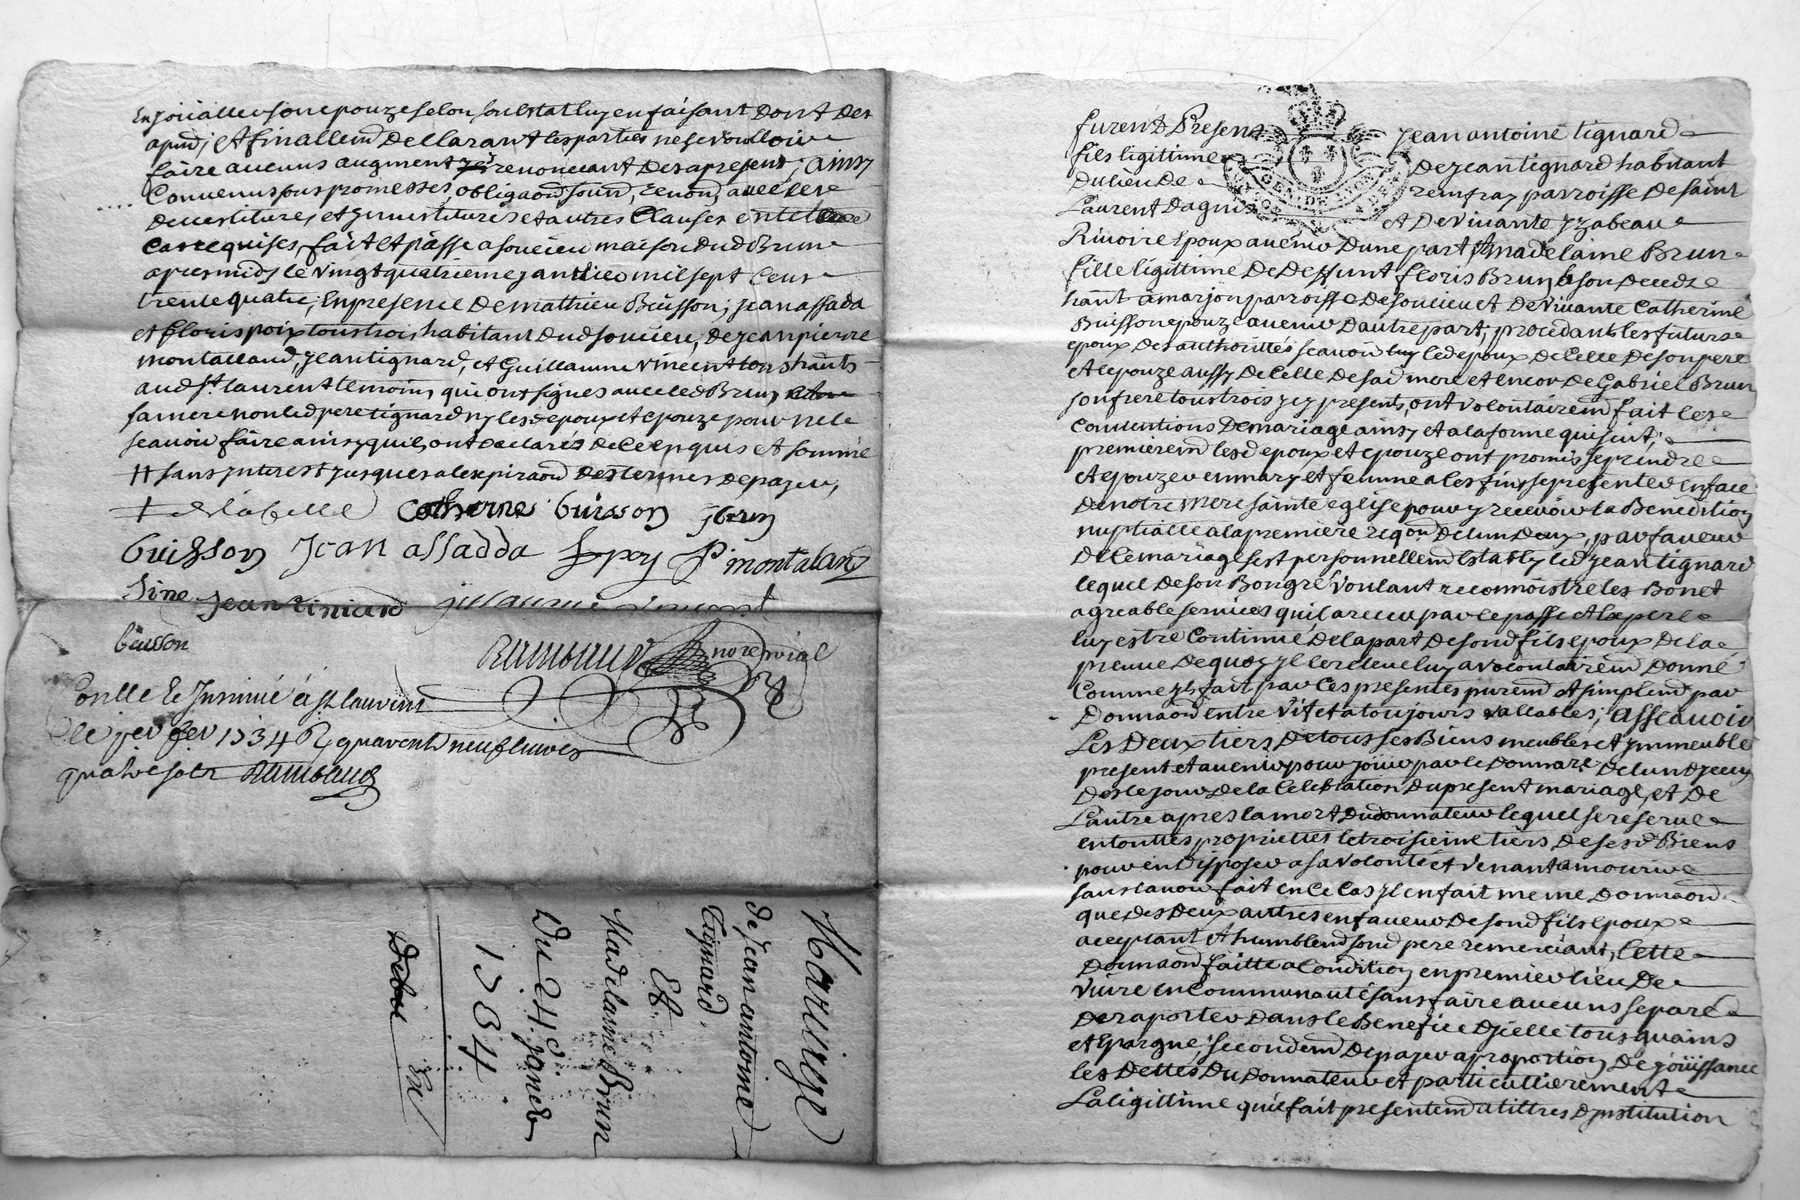 En joüaller son epouze selon son Estat luy en faisant Dont des
apnt, et finallemd Decllarant les parties ne se voulloir
faire aucuns augment renoncant Des apresent, ainsy
Convenus sous promesses, obligaond soumd, Renond, avec les
Devestitures et Jnvestitures et autres Clauses en tel
Cas requises, fait et passe a soucieu maison dud Brun
apresmidy le vingtquatrieme janvier mil sept Cent
trente quatre, En presence De mathieu Buisson, Jean assada
et floris poix tous trois habitant Dud soucieu, de jean pierre
montalland, Jean tignard, et Guillaume vincent tous hants
aud st laurent temoins qui ont signes avec led Brun
sa mere non led pere tignard ny lesd epoux et epouze pour ne le
scavoir faire ainsy quils ont declarés de ce enquis et sommé
# sans Jnterest jusques a lexpiraond Des termes De payer,
catherine buisson jbrun
buisson Jean assadda fpoy P montalanz
Jean tiniard guillaume
buisson
Rambaud nore Royal
Conlle & Insinué à st laurent
le jer fev 1734 R quarente neuf livres
quatre solz Rambaud
Mariage
de jean antoine
Tignard,
Et
Madelaine Brun
Du 24e janer
1734
furent Presens Jean antoine tignard
fils legittime De jean tignard habitant
Du lieu de remfray parroisse De saint
Laurent Dagny Et De vivante yzabeau
Rivoire Epoux avenir Dune part, madelaine Brun
fille legittime De Deffunt floris Brun a son Decedz
hant a marjon parroisse De soucieu et De vivante Catherine
Buisson epouze avenir Dautre part, procedant les futurs
epoux Des authorittés scavoir led epoux De Celle De son pere
et lepouze aussy De Celle de sad mere et Encor De Gabriel Brun
son frere tous trois jcy presents, ont volontairemd fait les
Conventions De mariage ainsy et a la forme qui suit;
premieremd lesd epoux et epouze ont promis se prendre
et epouzer en mary et femme a les fins se presenter En face
De notre mere sainte eglise pour y recevoir la Benediction
nuptialle a la premiere reqond De lun Deux, par faveur
De Ce mariage sest personnellemd Estably led jean tignard
lequel De son Bon gré voulant reconnoistre les Bons et
agreable services quil a receu par le passe et espere
luy estre Continué De la part De sond fils epoux De la
preuve De quoy jl le releve luy a volontairemd Donné
Comme jl fait par Ces presentes puremd et simplemd par
Donnaond entre vif et a toujours vallables, asseavoir
Les Deux tiers De tous ses Biens meubles et jmmeubles
present et avenir pour jouir par le Donnaze De lun Djceux
Des le jour De la Celebration Du present mariage, et De
Lautre apres la mort Du donnateur lequel se reserve
en touttes proprietttés le troisieme tiers De sesd Biens
pour en Disposer a sa volonté et venant a mourir
sans lavoir fait en Ce Cas jl en fait meme Donnaond
que des Deux autres en faveur De sond fils epoux
acceptant et humblemd sond pere remerciant, Cette
Donnaond faitte a Condition en premier lieu De
vivre en Communauté sans faire aucuns separé
De raporter Dans le Benefice Djcelle tous quains
et Epargne, secondemd De payer a proportion De joüissance
les Dettes Du Donnateur et particullierement
La legittime quil fait presentemd a tittres Djnstitution